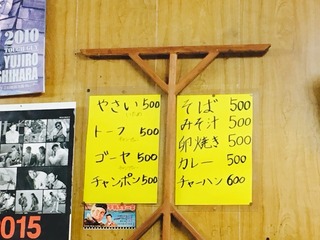 2010
YUJIRO
ISHIHARA
やさい 500
いため
トーフ 500
ゴーヤ 500
チャンポン 500
そば 500
みそ汁 500
卵焼き 500
カレー 500
チャーハン 600
2015